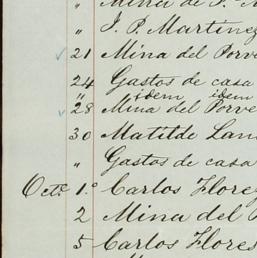 " Mina de P. M
" J. P. Martinez
21 Mina del Porve
24 Gastos de casa
" idem idem
28 Mina del Porve
30 Matilde Lan
" Gastos de casa
Octe 1.º Carlos Flore
2 Mina del P
5 Carlos Flores